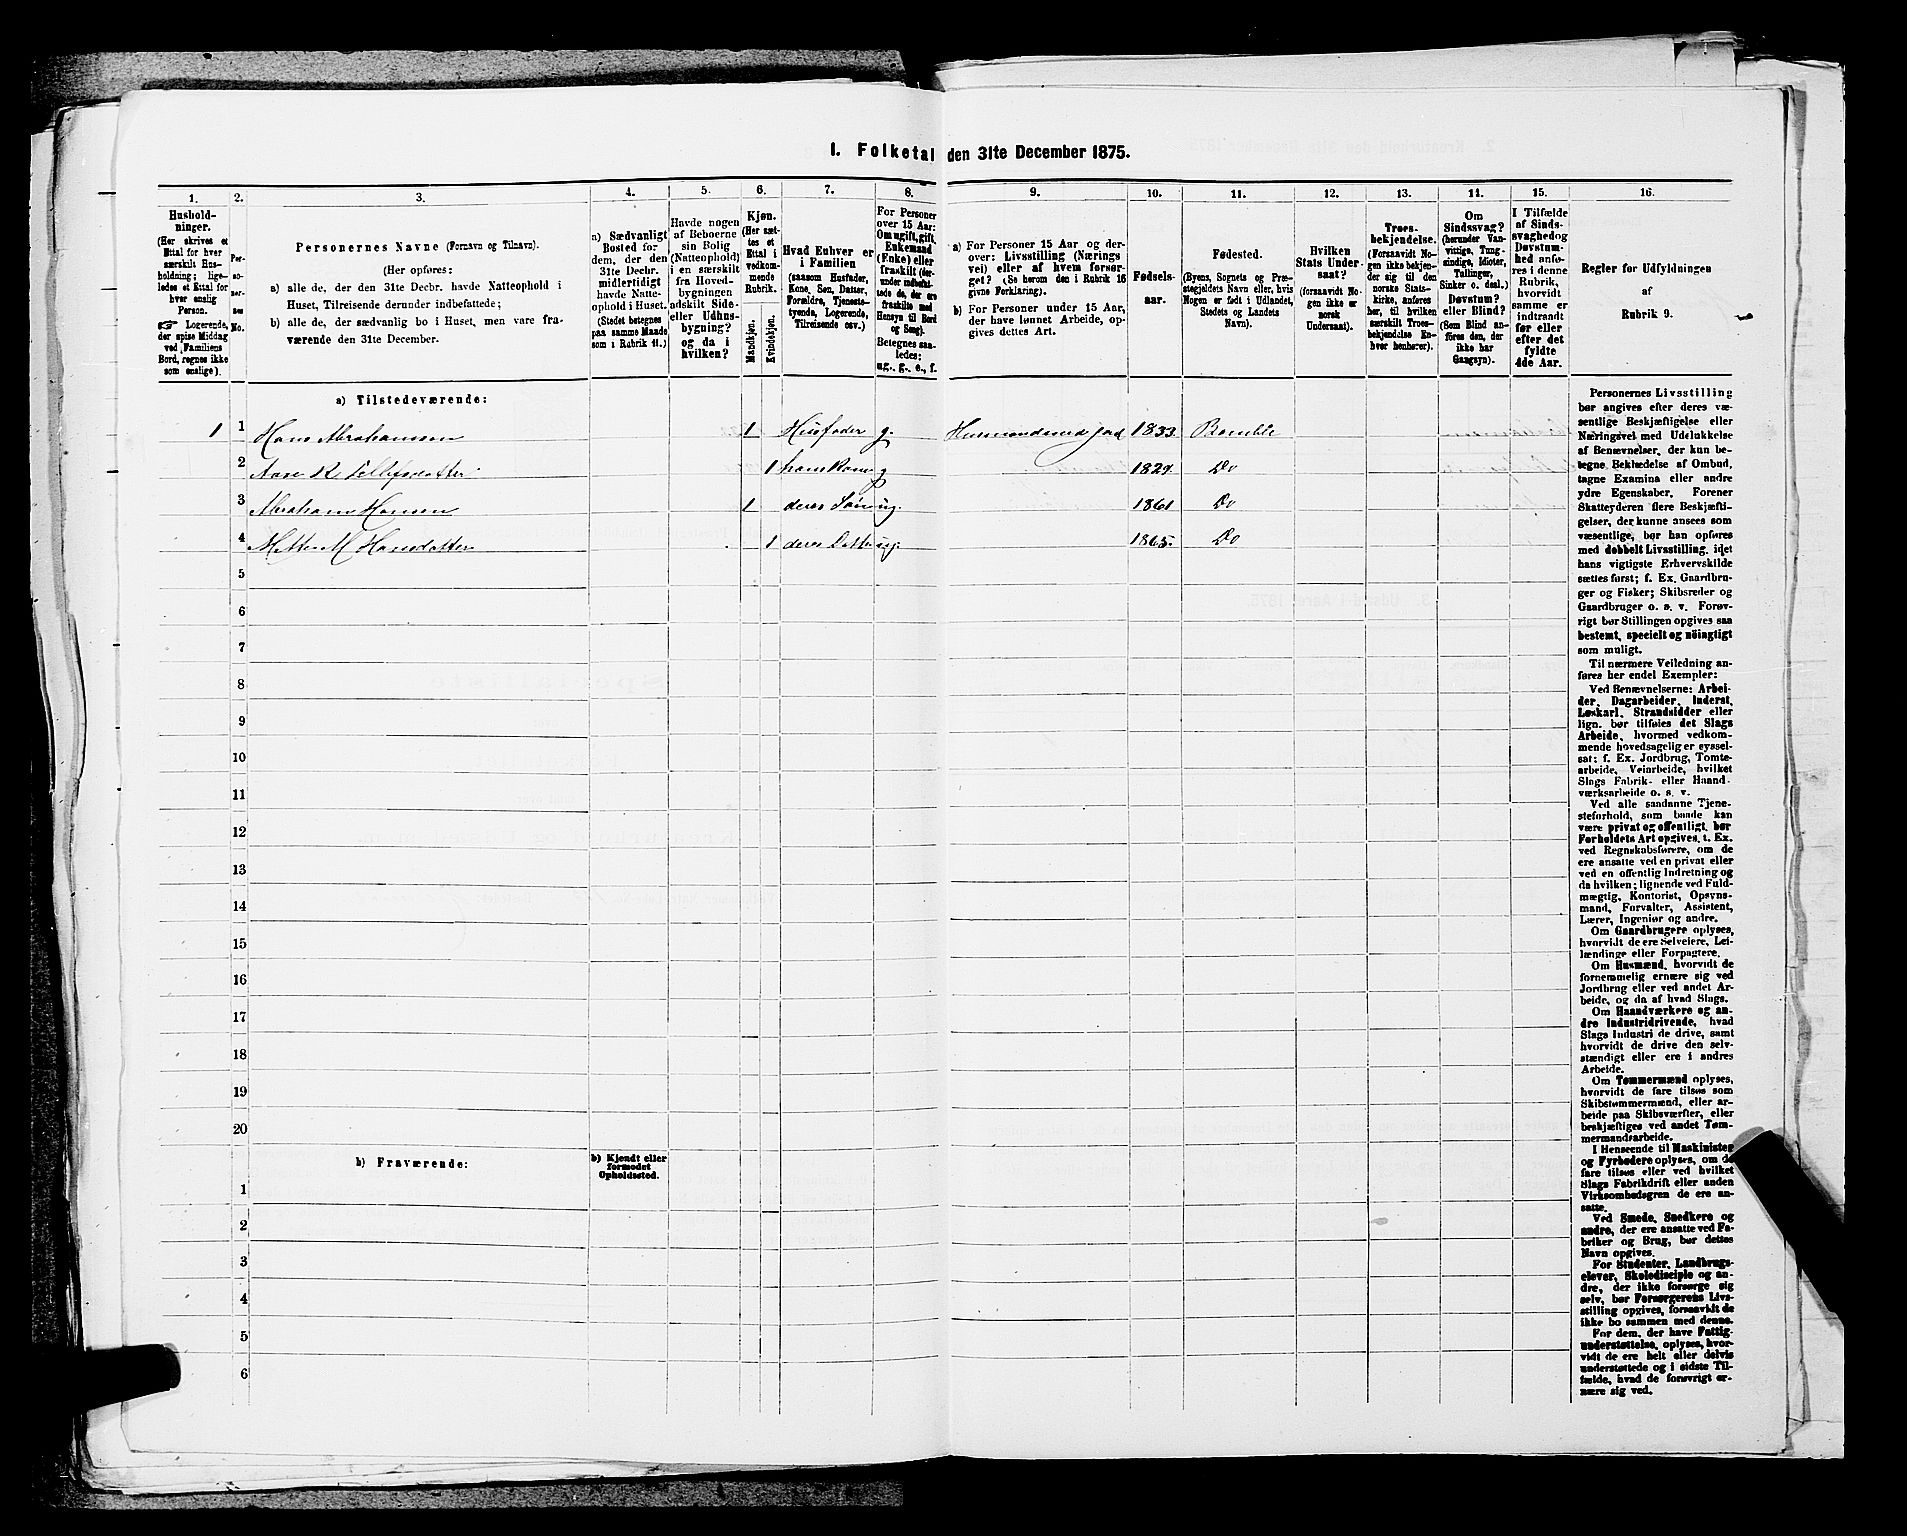 1. Folketal den 31te December 1875.
1.
Hushold-
ninger.
(Her skrives et
Ettal for hver
særskilt Hus-
holdning; lige-
ledes et Ettal for
hver enslig
Person.
☞ Logerende,
der spise Middag
ved Familiens
Bord, regnes ikke
som enslige).
2.
Per-
so-
ner-
nes
No.
3.
Personernes Navne (Fornavn og Tilnavn).
(Her opføres:
a) alle de, der den 31te Decbr. havde Natteophold i
Huset, Tilreisende derunder indbefattede;
b) alle de, der sædvanlig bo i Huset, men vare fra-
værende den 31te December.
4.
a) Sædvanligt
Bosted for
dem, der den
31te Decbr.
midlertidigt
havde Natte-
ophold i Huset.
(Stedet betegnes
paa samme Maade
som i Rubrik 11.)
5.
Havde nogen
af Beboerne
sin Bolig
(Natteophold)
i en særskilt
fra Hoved-
bygningen
adskilt Side-
eller Udhus-
bygning?
og da i
hvilken?
6.
Kjøn.
(Her sæt-
tes et
Ettal i
vedkom-
mende
Rubrik.
Mandkjøn.
Kvindekjøn.
7.
Hvad Enhver er
i Familien
(saasom Husfader,
Kone, Søn, Datter,
Forældre, Tjeneste-
tyende, Logerende,
Tilreisende osv.)
8.
For Personer
over 15 Aar:
Om ugift, gift,
Enkemand
(Enke) eller
fraskilt (der-
under indbefat-
tede de, der ere
fraskilte med
Hensyn til Bord
og Seng).
Betegnes saa-
ledes:
ug., g., e., f.
9.
a) For Personer 15 Aar og der-
over: Livsstilling (Nærings
vei) eller af hvem forsør-
get? (Se herom den i Rubrik 16
givne Forklaring).
b) For Personer under 15 Aar,
der have lønnet Arbeide, op-
gives dettes Art.
10.
Fødsels-
aar.
11.
Fødested.
(Byens, Sognets og Præ-
stegjeldets Navn eller, hvis
Nogen er født i Udlandet,
Stedets og Landets
Navn).
12.
Hvilken
Stats Under-
saat?
(forsaavidt No-
gen ikke er
norsk
Undersaat).
13.
Troes-
bekjendelse.
(Forsaavidt No-
gen ikke bekjen-
der sig til den
norske Stats-
kirke, anføres
her, til hvilken
særskilt Troes-
bekjendelse En-
hver henhører).
14.
Om
Sindssvag?
(herunder Van-
vittige, Tung-
sindige, Idioter,
Tullinger,
Sinker o. desl.)
Døvstum?
eller Blind?
(Som Blind an-
føres den, der
ikke har
Gangsyn).
15.
I Tilfælde
af Sinds-
svaghed og
Døvstum-
hed anfø-
res i denne
Rubrik,
hvorvidt
samme er
indtraadt
før eller
efter det
fyldte
4de Aar.
16.
Regler for Udfyldningen
af
Rubrik 9.
a) Tilstedeværende:
1 1 Hans Abrahamsen 1 Husfader g. Husmand med Jord 1833 Bamble
2 Aase K. 1 hans Kone g 1829 Do
3 Abraham Hansen 1 deres Søn ug. 1861 Do
4 Mette M Hansdatter 1 deres Datter ug. 1865. Do
5
6
7
8
9
10
11
12
13
14
15
16
17
18
19
20
b) Fraværende:
b) Kjendt eller
formodet
Opholdssted.
1
2
3
4
5
6
Personernes Livsstilling
bør angives efter deres væ-
sentlige Beskjæftigelse eller
Næringsvei med Udelukkelse
af Benævnelser, der kun be-
tegne Beklædelse af Ombud,
tagne Examina eller andre
ydre Egenskaber. Forener
Skatteyderen flere Beskjæfti-
gelser, der kunne ansees som
væsentlige, bør han opføres
med dobbelt Livsstilling, idet
hans vigtigste Erhvervskilde
sættes først; f. Ex. Gaardbru-
ger og Fisker; Skibsreder og
Gaardbruger o. s. v. Forøv-
rigt bør Stillingen opgives saa
bestemt, specielt og nöiagtigt
som muligt.
Til nærmere Veiledning an-
føres her endel Exempler:
Ved Benævnelserne: Arbei-
der, Dagarbeider, Inderst,
Løskarl, Strandsidder eller
lign. bør tilføies det Slags
Arbeide, hvormed vedkom-
mende hovedsagelig er syssel-
sat; f. Ex. Jordbrug, Tomte-
arbeide, Veiarbeide, hvilket
Slags Fabrik- eller Haand-
værksarbeide o. s. v.
Ved alle saadanne Tjene-
steforhold, som baade kan
være privat og offentligt, bør
Forholdets Art opgives, t. Ex.
ved Regnskabsførere, om de
ere ansatte ved en privat eller
ved en offentlig Indretning og
da hvilken; lignende ved Fuld-
mægtig, Kontorist, Opsyns-
mand, Forvalter, Assistent,
Lærer, Ingeniør og andre.
Om Gaardbrugere oplyses,
hvorvidt de ere Selveiere, Lei-
lændinge eller Forpagtere.
Om Husmænd, hvorvidt de
fornemmelig ernære sig ved
Jordbrug eller ved andet Ar-
beide, og da af hvad Slags.
Om Haandværkere og an-
dre Industridrivende, hvad
Slags Industri de drive, samt
hvorvidt de drive den selv-
stændigt eller ere i andres
Arbeide.
Om Tømmermænd oplyses,
hvorvidt de fare tilsøs som
Skibstømmermænd, eller ar-
beide paa Skibsværfter, eller
beskjæftiges ved andet Tøm-
mermandsarbeide.
I Henseende til Maskinister
og Fyrbødere oplyses, om de
fare tilsøs eller ved hvilket
Slags Fabrikdrift eller anden
Virksomhedsgren de ere an-
satte.
Ved Smede, Snedkere og
andre, der ere ansatte ved Fa-
briker og Brug, bør dettes
Navn opgives.
For Studenter, Landbrugs-
elever, Skoledisciple og an-
dre, der ikke forsørge sig
selv, bør Forsørgerens Livs-
stilling opgives, forsaavidt de
ikke bo sammen med denne.
For dem, der have Fattig-
understøttelse, oplyses, hvor-
vidt de ere helt eller delvis
understøttede og i sidste Til-
fælde, hvad de forøvrigt er-
nære sig ved.